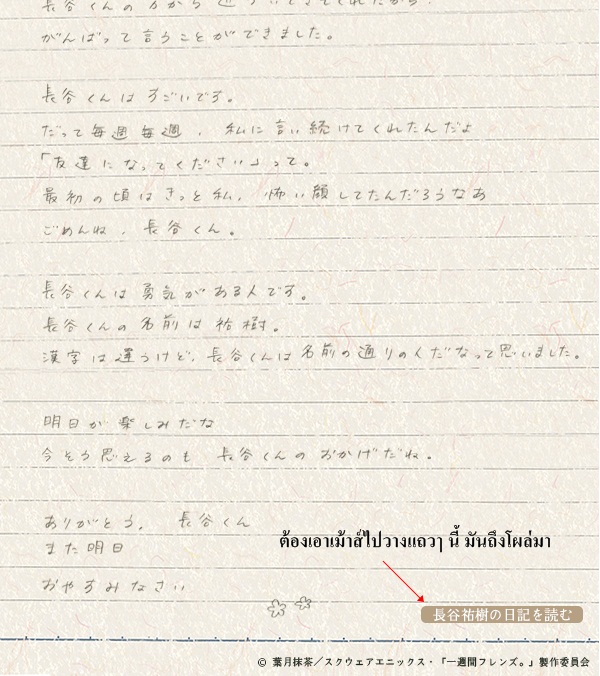 長谷くんの方から近づいてきてくれたから、
がんばって言うことができました。
長谷くんはすごいです。
だって毎週毎週、私に言い続けてくれたんだよ
「友達になってください」って。
最初の頃はきっと私、怖い顔してたんだろうなあ
ごめんね、長谷くん。
長谷くんは勇気がある人です。
長谷くんの名前は祐樹。
漢字は違うけど、長谷くんは名前の通りの人だなって思いました。
明日が楽しみだな
今そう思えるのも 長谷くんのおかげだね。
ありがとう、 長谷くん
また明日
おやすみなさい
ต้องเอาเม้าส์ไปวางแถวๆ นี้ มันถึงโผล่มา
長谷祐樹の日記を読む
© 葉月抹茶／スクウェアエニックス・「一週間フレンズ。」製作委員会